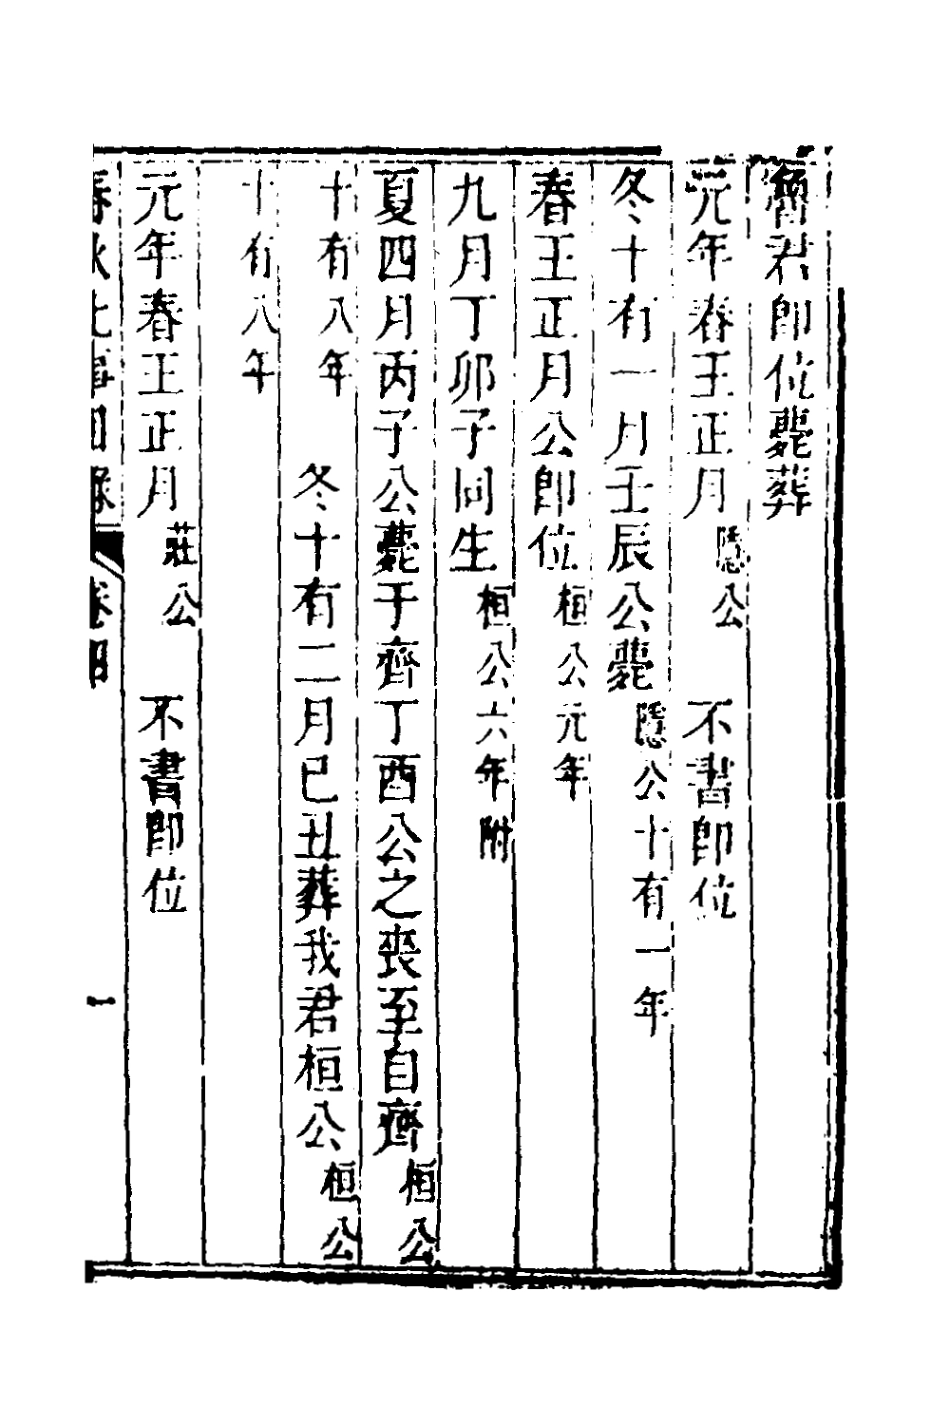 魯君即位薨葬
元年春王正月隱公　不書即位
冬十有一月壬辰公薨隱公十有一年
春王正月公即位桓公元年
九月丁卯子同生桓公六年附
夏四月丙子公薨于齊丁酉公之喪至自齊桓公
十有八年　冬十有二月己丑葬我君桓公桓公
十有八年
元年春王正月莊公　不書即位
春秋比事目錄　卷四　一